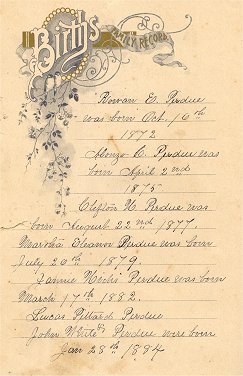 Births
FAMILY RECORD
Rowan E. Perdue
was born Oct. 16th
1872
Alonzo C. Perdue was
born April 2nd
1875
Clifton H. Perdue was
born August 22nd 1877.
Martha Eleanor Perdue was born
July 20th 1879.
Fannie Perdue was born
March 17th 1882.
Lucas Pittard Perdue
John Perdue were born
Jan 28th 1884